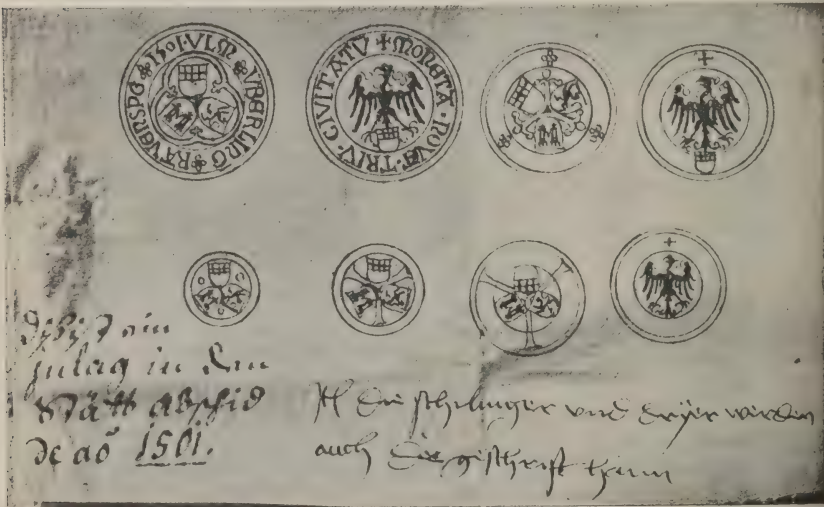 ✠ 1501 · VLM ✠ VBERLING ✠ RAVENSPG
✠ MONETA · NOVA · TRIV · CIVITATV
Diß ist ein
zulag in den
Stätt abschid
de aō 1501.
It die schilinger vnd dryer werden
auch die gschrift hann